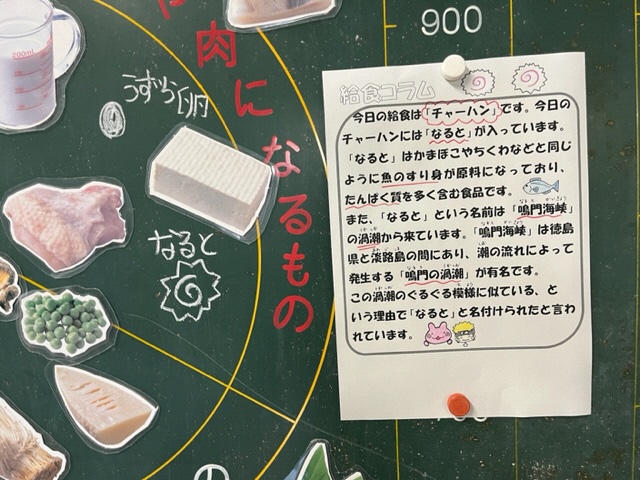 200mL
肉になるもの
うずら卵
なると
の
900
給食コラム
今日の給食は「チャーハン」です。今日の
チャーハンには「なると」が入っています。
「なると」はかまぼこやちくわなどと同じ
ように魚のすり身が原料になっており、
たんぱく質を多く含む食品です。
また、「なると」という名前は「鳴門海峡」
の渦潮から来ています。「鳴門海峡」は徳島
県と淡路島の間にあり、潮の流れによって
発生する「鳴門の渦潮」が有名です。
この渦潮のぐるぐる模様に似ている、と
いう理由で「なると」と名付けられたと言わ
れています。